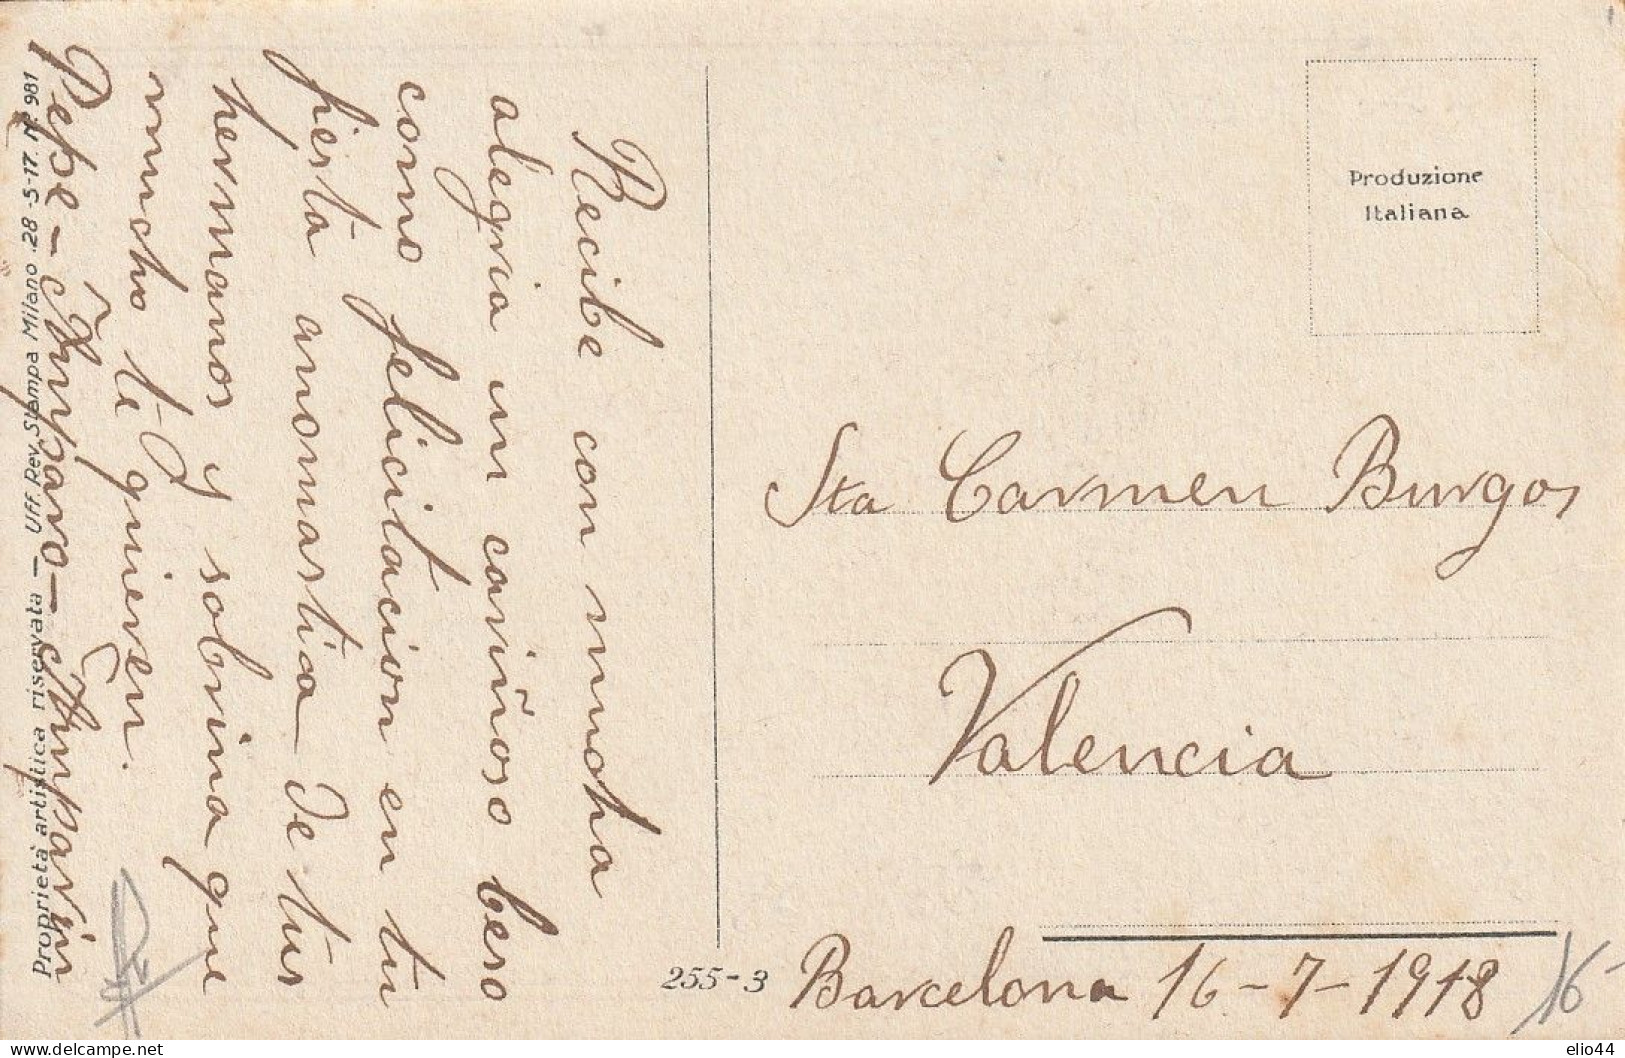 Recibe con mucha
alegria un cariñoso beso
como felicitacion en tu
fiesta anomastica de tus
hermanos y sobrina que
mucho te quieren.
Pepe - Amparo - Amparin
Proprietà artistica riservata - Uff. Rev. Stampa Milano. 28-5-17. N.º 981
Produzione
Italiana
Sta Carmen Burgos
Valencia
255-3
Barcelona 16-7-1918
16-
elio44